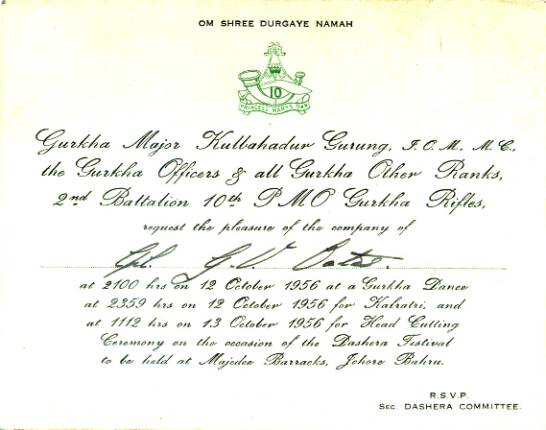 OM SHREE DURGAYE NAMAH
10
PRINCESS MARY'S OWN
Gurkha Major Kulbahadur Gurung, I.O.M. M.C.,
the Gurkha Officers & all Gurkha Other Ranks,
2nd Battalion 10th P M O Gurkha Rifles,
request the pleasure of the company of
Cpl. G. V.
at 2100 hrs on 12 October 1956 at a Gurkha Dance
at 2359 hrs on 12 October 1956 for Kalratri, and
at 1112 hrs on 13 October 1956 for Head Cutting
Ceremony on the occasion of the Dashera Festival
to be held at Majedee Barracks, Johore Bahru.
R.S.V.P.
SEC. DASHERA COMMITTEE.